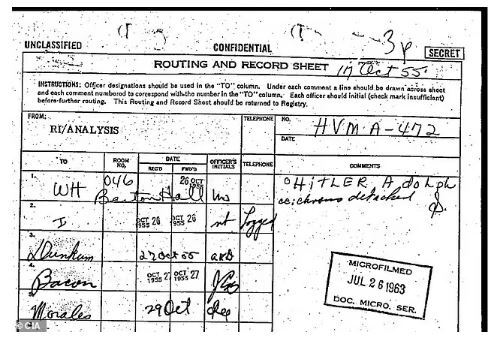 3p
UNCLASSIFIED CONFIDENTIAL SECRET
ROUTING AND RECORD SHEET 17 Oct 55
INSTRUCTIONS: Officer designations should be used in the "TO" column. Under each comment a line should be drawn across sheet
and each comment numbered to correspond with the number in the "TO" column. Each officer should initial (check mark insufficient)
before further routing. This Routing and Record Sheet should be returned to Registry.
FROM: TELEPHONE NO.
RI/ANALYSIS HVMA-472
DATE
TO ROOM NO. DATE OFFICER'S INITIALS TELEPHONE COMMENTS
REC'D FWD'D
1. WH 046 Barton Hall 26 OCT 1955
HITLER Adolph
cc: chrono detached
2. I OCT 26 1955 OCT 26 1955 Logged
3. Dunham 27 Oct 55
4. Bacon OCT 27 1955 OCT 27 1955
5. Morales 29 Oct
MICROFILMED
JUL 26 1963
DOC. MICRO. SER.
© CIA